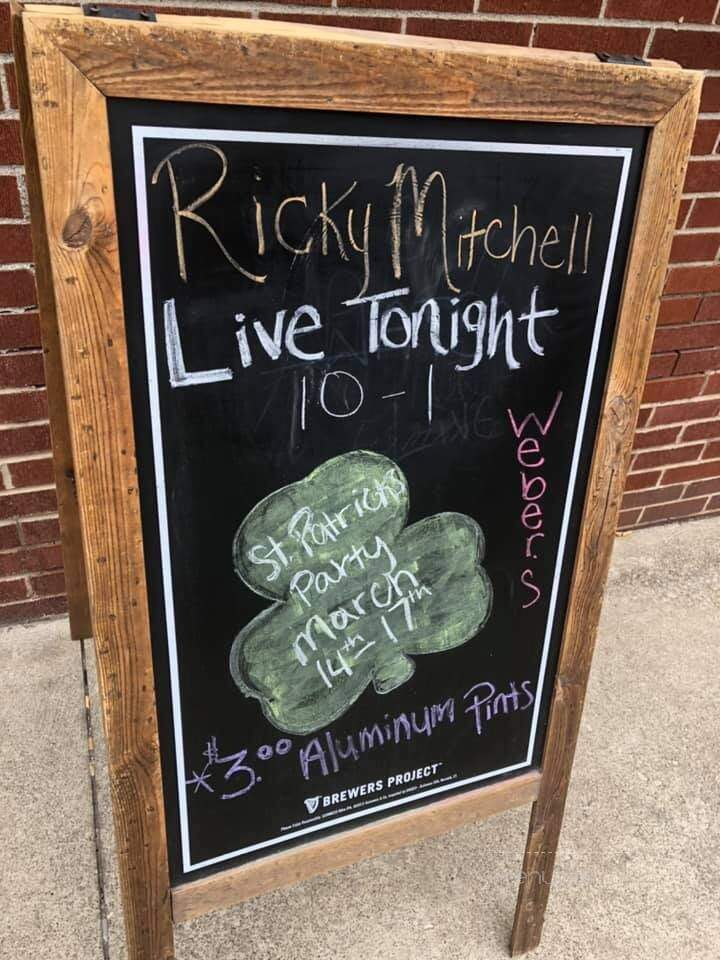 Ricky Mitchell
Live Tonight
10-1
Webers
St. Patricks
Party
March
14th 17th
*$3.00 Aluminum Pints
BREWERS PROJECT